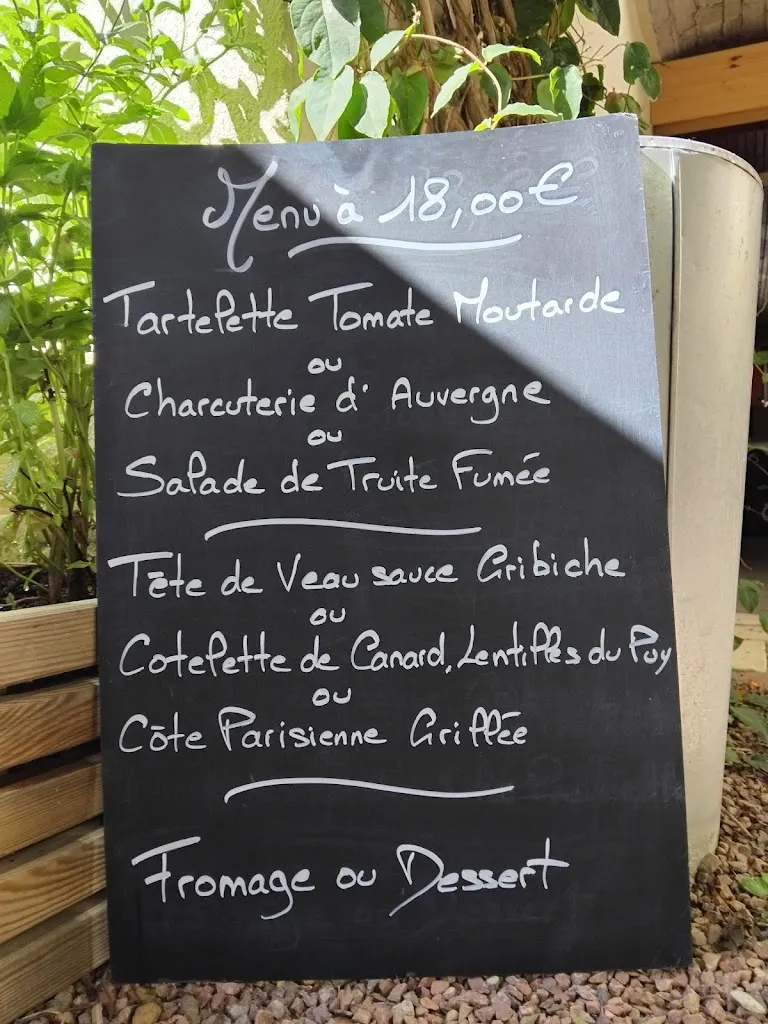 Menu à 18,00€
Tartelette Tomate Moutarde
ou
Charcuterie d'Auvergne
ou
Salade de Truite Fumée
Tête de Veau sauce Gribiche
ou
Cotelette de Canard, Lentilles du Puy
ou
Côte Parisienne Grillée
Fromage ou Dessert